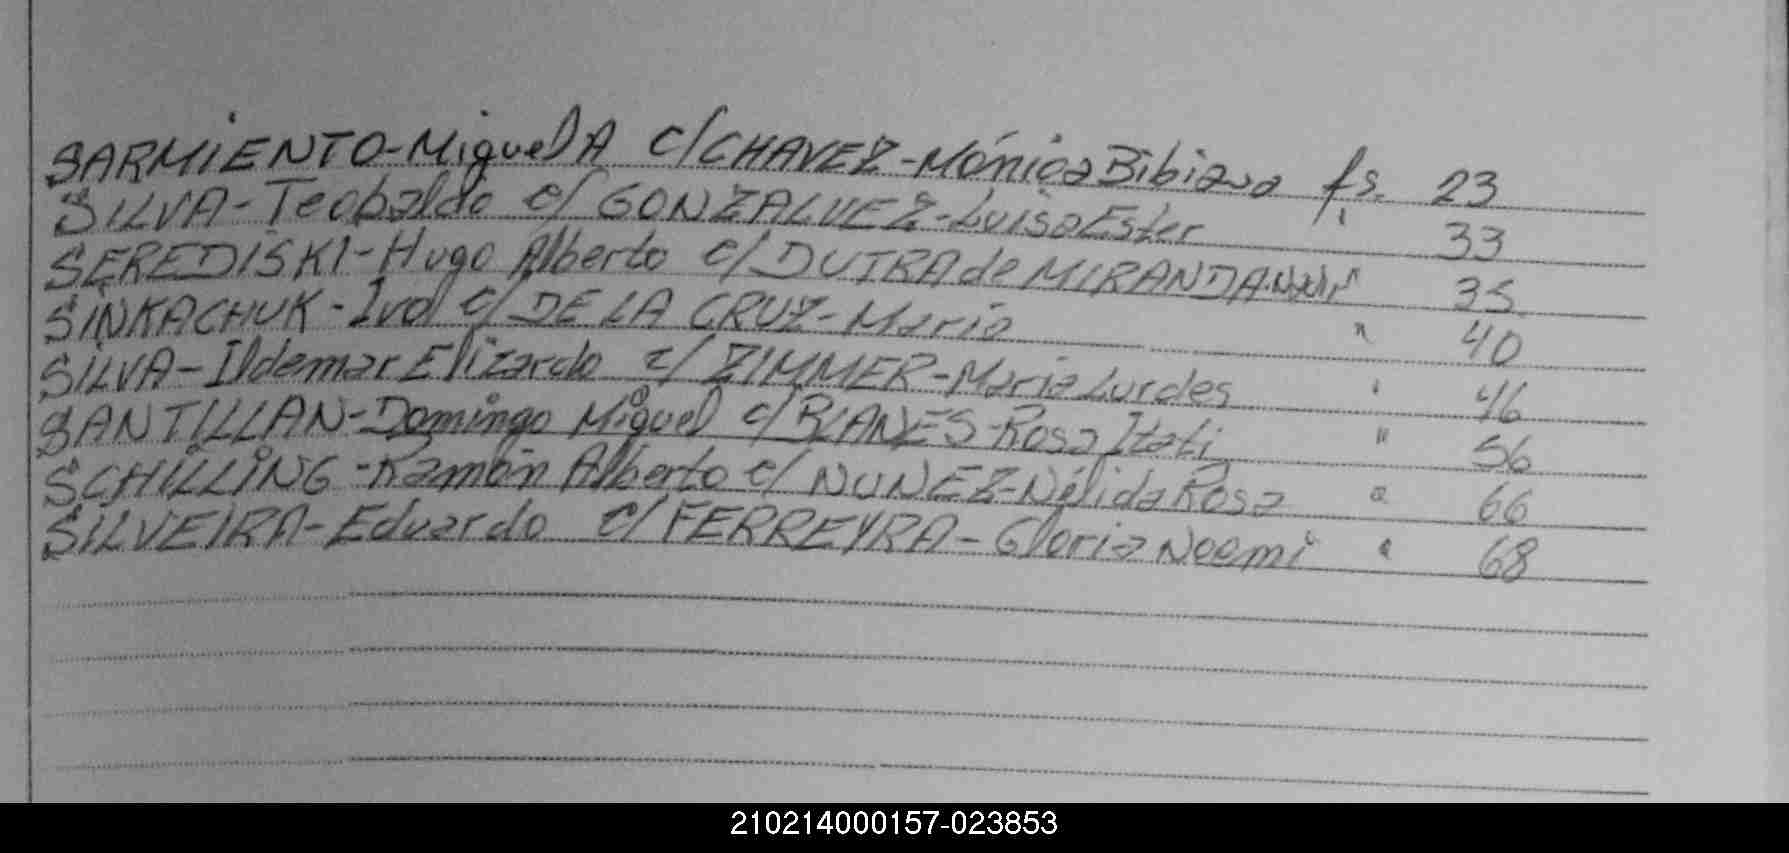 SARMIENTO-Miguel A c/CHAVEZ-Mónica Bibiana fs. 23
SILVA-Teobaldo c/ GONZALVEZ-Luisa Ester " 33
SEREDISKI-Hugo Alberto c/ DUTRA de MIRANDA " 35
SINKACHUK-Ivol c/ DE LA CRUZ-Maria " 40
SILVA-Ildemar Elizardo c/ ZIMMER-Maria Lurdes " 46
SANTILLAN-Domingo Miguel c/ BLANES-Rosa Itati " 56
SCHILLING-Ramón Alberto c/ NUNEZ-Nélida Rosa " 66
SILVEIRA-Eduardo c/ FERREYRA-Gloria Noemi " 68
210214000157-023853